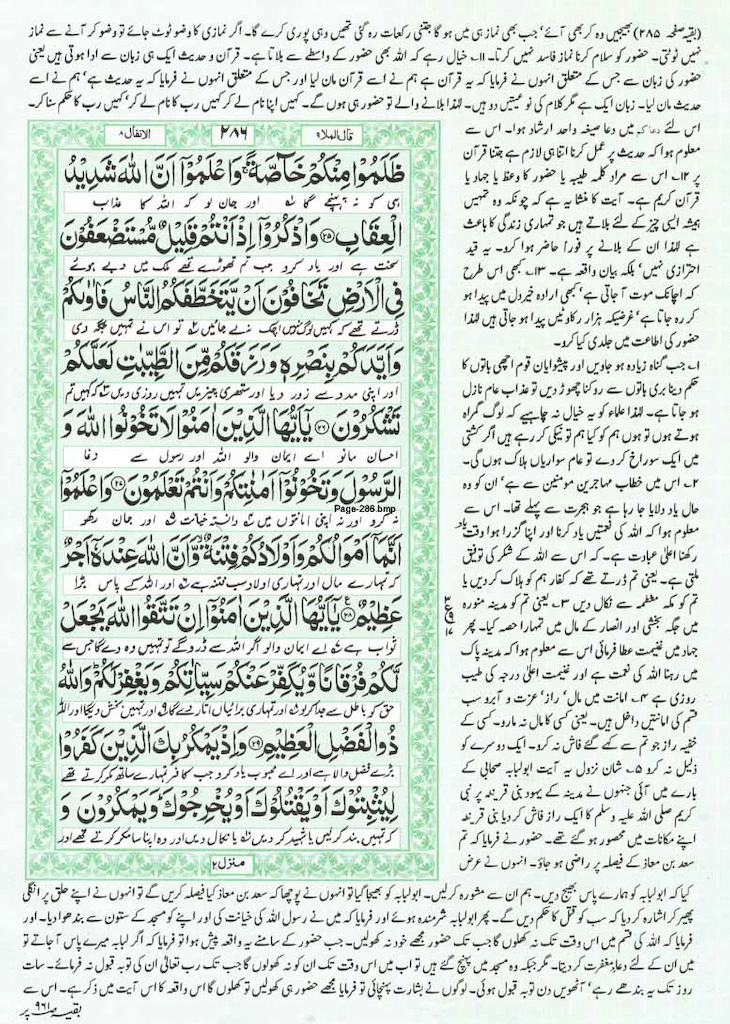 (بقیہ صفحہ ۲۸۵) بھیجیں وہ کر بھی آئے' جب بھی نماز ہی میں ہو گا جتنی رکعات رہ گئی تھیں وہی پوری کرے گا۔ اگر نمازی کا وضو ٹوٹ جائے تو وضو کر آنے سے نماز
نہیں ٹوٹتی۔ حضور کو سلام کرنا نماز فاسد نہیں کرتا۔ ۱۱۔ خیال رہے کہ اللہ بھی حضور کے واسطے سے بلاتا ہے۔ قرآن و حدیث ایک ہی زبان سے ادا ہوتی ہیں یعنی
حضور کی زبان سے جس کے متعلق انہوں نے فرمایا کہ یہ قرآن ہے ہم نے اسے قرآن مان لیا اور جس کے متعلق انہوں نے فرمایا کہ یہ حدیث ہے' ہم نے اسے
حدیث مان لیا۔ زبان ایک ہے مگر کلام کی نوعیتیں دو ہیں۔ لہٰذا بلانے والے تو حضور ہی ہوں گے۔ کہیں اپنا نام لے کر کہیں رب کا نام لے کر' کہیں رب کا حکم سنا کر۔
اس لئے دعاکم میں دعا صیغہ واحد ارشاد ہوا۔ اس سے
معلوم ہوا کہ حدیث پر عمل کرنا اتنا ہی لازم ہے جتنا قرآن
پر ۱۲۔ اس سے مراد کلمہ طیبہ یا حضور کا وعظ یا جہاد یا
قرآن کریم ہے۔ آیت کا منشا یہ ہے کہ چونکہ وہ تمہیں
ہمیشہ ایسی چیز کے لئے بلاتے ہیں جو تمہاری زندگی کا باعث
ہے لہٰذا ان کے بلانے پر فوراً حاضر ہوا کرو۔ یہ قید
احترازی نہیں' بلکہ بیان واقعہ ہے۔ ۱۳۔ کبھی اس طرح
کہ اچانک موت آ جاتی ہے' کبھی ارادہ خیر دل میں پیدا ہو
کر رہ جاتا ہے' غرضیکہ ہزار رکاوٹیں پیدا ہو جاتی ہیں لہٰذا
کی اطاعت میں جلدی کیا کرو۔
۱۔ جب گناہ زیادہ ہو جاویں اور پیشوایان قوم اچھی باتوں کا
حکم دینا بری باتوں سے روکنا چھوڑ دیں تو عذاب عام نازل
ہو جاتا ہے۔ لہٰذا علماء کو یہ خیال نہ چاہیے کہ لوگ گمراہ
ہوتے ہوں تو ہوں ہم کو کیا ہم تو نیکی کر رہے ہیں اگر کشتی
میں ایک سوراخ کر دے تو عام سواریاں ہلاک ہوں گی۔
۲۔ اس میں خطاب مہاجرین مومنین سے ہے' ان کو وہ
حال یاد دلایا جا رہا ہے جو ہجرت سے پہلے تھا۔ اس سے
معلوم ہوا کہ اللہ کی نعمتیں یاد کرنا اور اپنا گزرا ہوا وقت یاد
رکھنا اعلیٰ عبادت ہے۔ کہ اس سے اللہ کے شکر کی توفیق
ملتی ہے۔ یعنی تم ڈرتے تھے کہ کفار ہم کو ہلاک کر دیں یا
تم کو مکہ معظمہ سے نکال دیں ۳۔ یعنی تم کو مدینہ منورہ
میں جگہ بخشی اور انصار کے مال میں تمہارا حصہ کیا۔ پھر
جہاد میں غنیمت عطا فرمائی اس سے معلوم ہوا کہ مدینہ پاک
میں رہنا اللہ کی نعمت ہے اور غنیمت اعلیٰ درجہ کی طیب
روزی ہے ۴۔ امانت میں مال' راز' عزت و آبرو سب
قسم کی امانتیں داخل ہیں۔ یعنی کسی کا مال نہ مارو۔ کسی کے
خفیہ راز جو تم سے کہے گئے فاش نہ کرو۔ ایک دوسرے کو
ذلیل نہ کرو ۵۔ شان نزول یہ آیت ابولبابہ صحابی کے
بارے میں آئی جنہوں نے مدینہ کے یہود بنی قریظہ پر نبی
کریم صلی اللہ علیہ وسلم کا ایک راز فاش کر دیا بنی قریظہ
اپنے مکانات میں محصور ہو گئے تھے۔ حضور نے فرمایا کہ تم
سعد بن معاذ کے فیصلہ پر راضی ہو جاؤ۔ انہوں نے عرض
قال الملا ۹
۲۸۶
الانفال ۸
ظَلَمُوْا مِنْكُمْ خَآصَّةً ۚ وَاعْلَمُوْٓا اَنَّ اللّٰهَ شَدِيْدُ
ہی کو نہ پہنچے گا ۱ اور جان لو کہ اللہ کا عذاب
الْعِقَابِ ۲۵ وَاذْكُرُوْٓا اِذْ اَنْتُمْ قَلِيْلٌ مُّسْتَضْعَفُوْنَ
سخت ہے اور یاد کرو جب تم تھوڑے تھے ملک میں دبے ہوئے
فِى الْاَرْضِ تَخَافُوْنَ اَنْ يَّتَخَطَّفَكُمُ النَّاسُ فَاٰوٰىكُمْ
ڈرتے تھے کہ کہیں لوگ تمہیں اچک نہ لے جائیں ۲ تو اس نے تمہیں جگہ دی
وَاَيَّدَكُمْ بِنَصْرِهٖ وَرَزَقَكُمْ مِّنَ الطَّيِّبٰتِ لَعَلَّكُمْ
اور اپنی مدد سے زور دیا اور ستھری چیزیں تمہیں روزی دیں ۳ کہ کہیں تم
تَشْكُرُوْنَ ۲۶ يٰٓاَيُّهَا الَّذِيْنَ اٰمَنُوْا لَا تَخُوْنُوا اللّٰهَ وَ
احسان مانو اے ایمان والو اللہ اور رسول سے دغا
الرَّسُوْلَ وَتَخُوْنُوْٓا اَمٰنٰتِكُمْ وَاَنْتُمْ تَعْلَمُوْنَ ۲۷ وَاعْلَمُوْٓا
نہ کرو اور نہ اپنی امانتوں میں ۴ دانستہ خیانت ۵ اور جان رکھو
Page-286.bmp
اَنَّمَآ اَمْوَالُكُمْ وَاَوْلَادُكُمْ فِتْنَةٌ ۙ وَّاَنَّ اللّٰهَ عِنْدَهٗٓ اَجْرٌ
کہ تمہارے مال اور تمہاری اولاد سب فتنہ ہے ۶ اور اللہ کے پاس بڑا
عَظِيْمٌ ۲۸ يٰٓاَيُّهَا الَّذِيْنَ اٰمَنُوْٓا اِنْ تَتَّقُوا اللّٰهَ يَجْعَلْ
ثواب ہے ۷ اے ایمان والو اگر اللہ سے ڈرو گے تو تمہیں وہ دے گا جس سے
لَّكُمْ فُرْقَانًا وَّيُكَفِّرْ عَنْكُمْ سَيِّاٰتِكُمْ وَيَغْفِرْ لَكُمْ ؕ وَاللّٰهُ
حق کو باطل سے جدا کر لو ۸ اور تمہاری برائیاں اتار دے گا ۹ اور تمہیں بخش دیگا اور اللہ
ذُو الْفَضْلِ الْعَظِيْمِ ۲۹ وَاِذْ يَمْكُرُ بِكَ الَّذِيْنَ كَفَرُوْا
بڑے فضل والا ہے اور اے محبوب یاد کرو جب کافر تمہارے ساتھ مکر کرتے تھے
لِيُثْبِتُوْكَ اَوْ يَقْتُلُوْكَ اَوْ يُخْرِجُوْكَ ؕ وَيَمْكُرُوْنَ وَ
کہ تمہیں بند کر لیں یا شہید کر دیں یا نکال دیں اور وہ اپنا سا مکر کرتے تھے اور
منزل ۲
کیا کہ ابولبابہ کو ہمارے پاس بھیج دیں۔ ہم ان سے مشورہ کر لیں۔ ابولبابہ کو بھیجا گیا تو انہوں نے پوچھا کہ سعد بن معاذ کیا فیصلہ کریں گے تو انہوں نے اپنے حلق پر انگلی
پھیر کر اشارہ کر دیا کہ سب کو قتل کا حکم دیں گے۔ پھر ابولبابہ شرمندہ ہوئے اور فرمایا کہ میں نے رسول اللہ کی خیانت کی اور اپنے کو مسجد کے ستون سے بندھوا دیا۔ اور
فرمایا کہ اللہ کی قسم میں اس وقت تک نہ کھلوں گا جب تک حضور مجھے خود نہ کھولیں۔ جب حضور کے سامنے یہ واقعہ پیش ہوا تو فرمایا کہ اگر لبابہ میرے پاس آ جاتے تو
میں ان کے لئے دعاء مغفرت کر دیتا۔ مگر جبکہ وہ مسجد میں پہنچ گئے ہیں تو اب میں اس وقت تک ان کو نہ کھولوں گا جب تک رب تعالیٰ ان کی توبہ قبول نہ فرمائے۔ سات
روز تک یہ بندھے رہے' آٹھویں دن توبہ قبول ہوئی۔ لوگوں نے بشارت پہنچائی تو فرمایا مجھے حضور ہی کھولیں تو کھلوں گا اس واقعہ کا اس آیت میں ذکر ہے۔ اس سے
بقیہ صـ ۹۶۱ پر